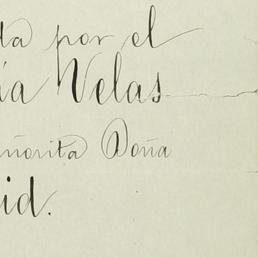 ta por el
ía Velas
eñorita Doña
id.